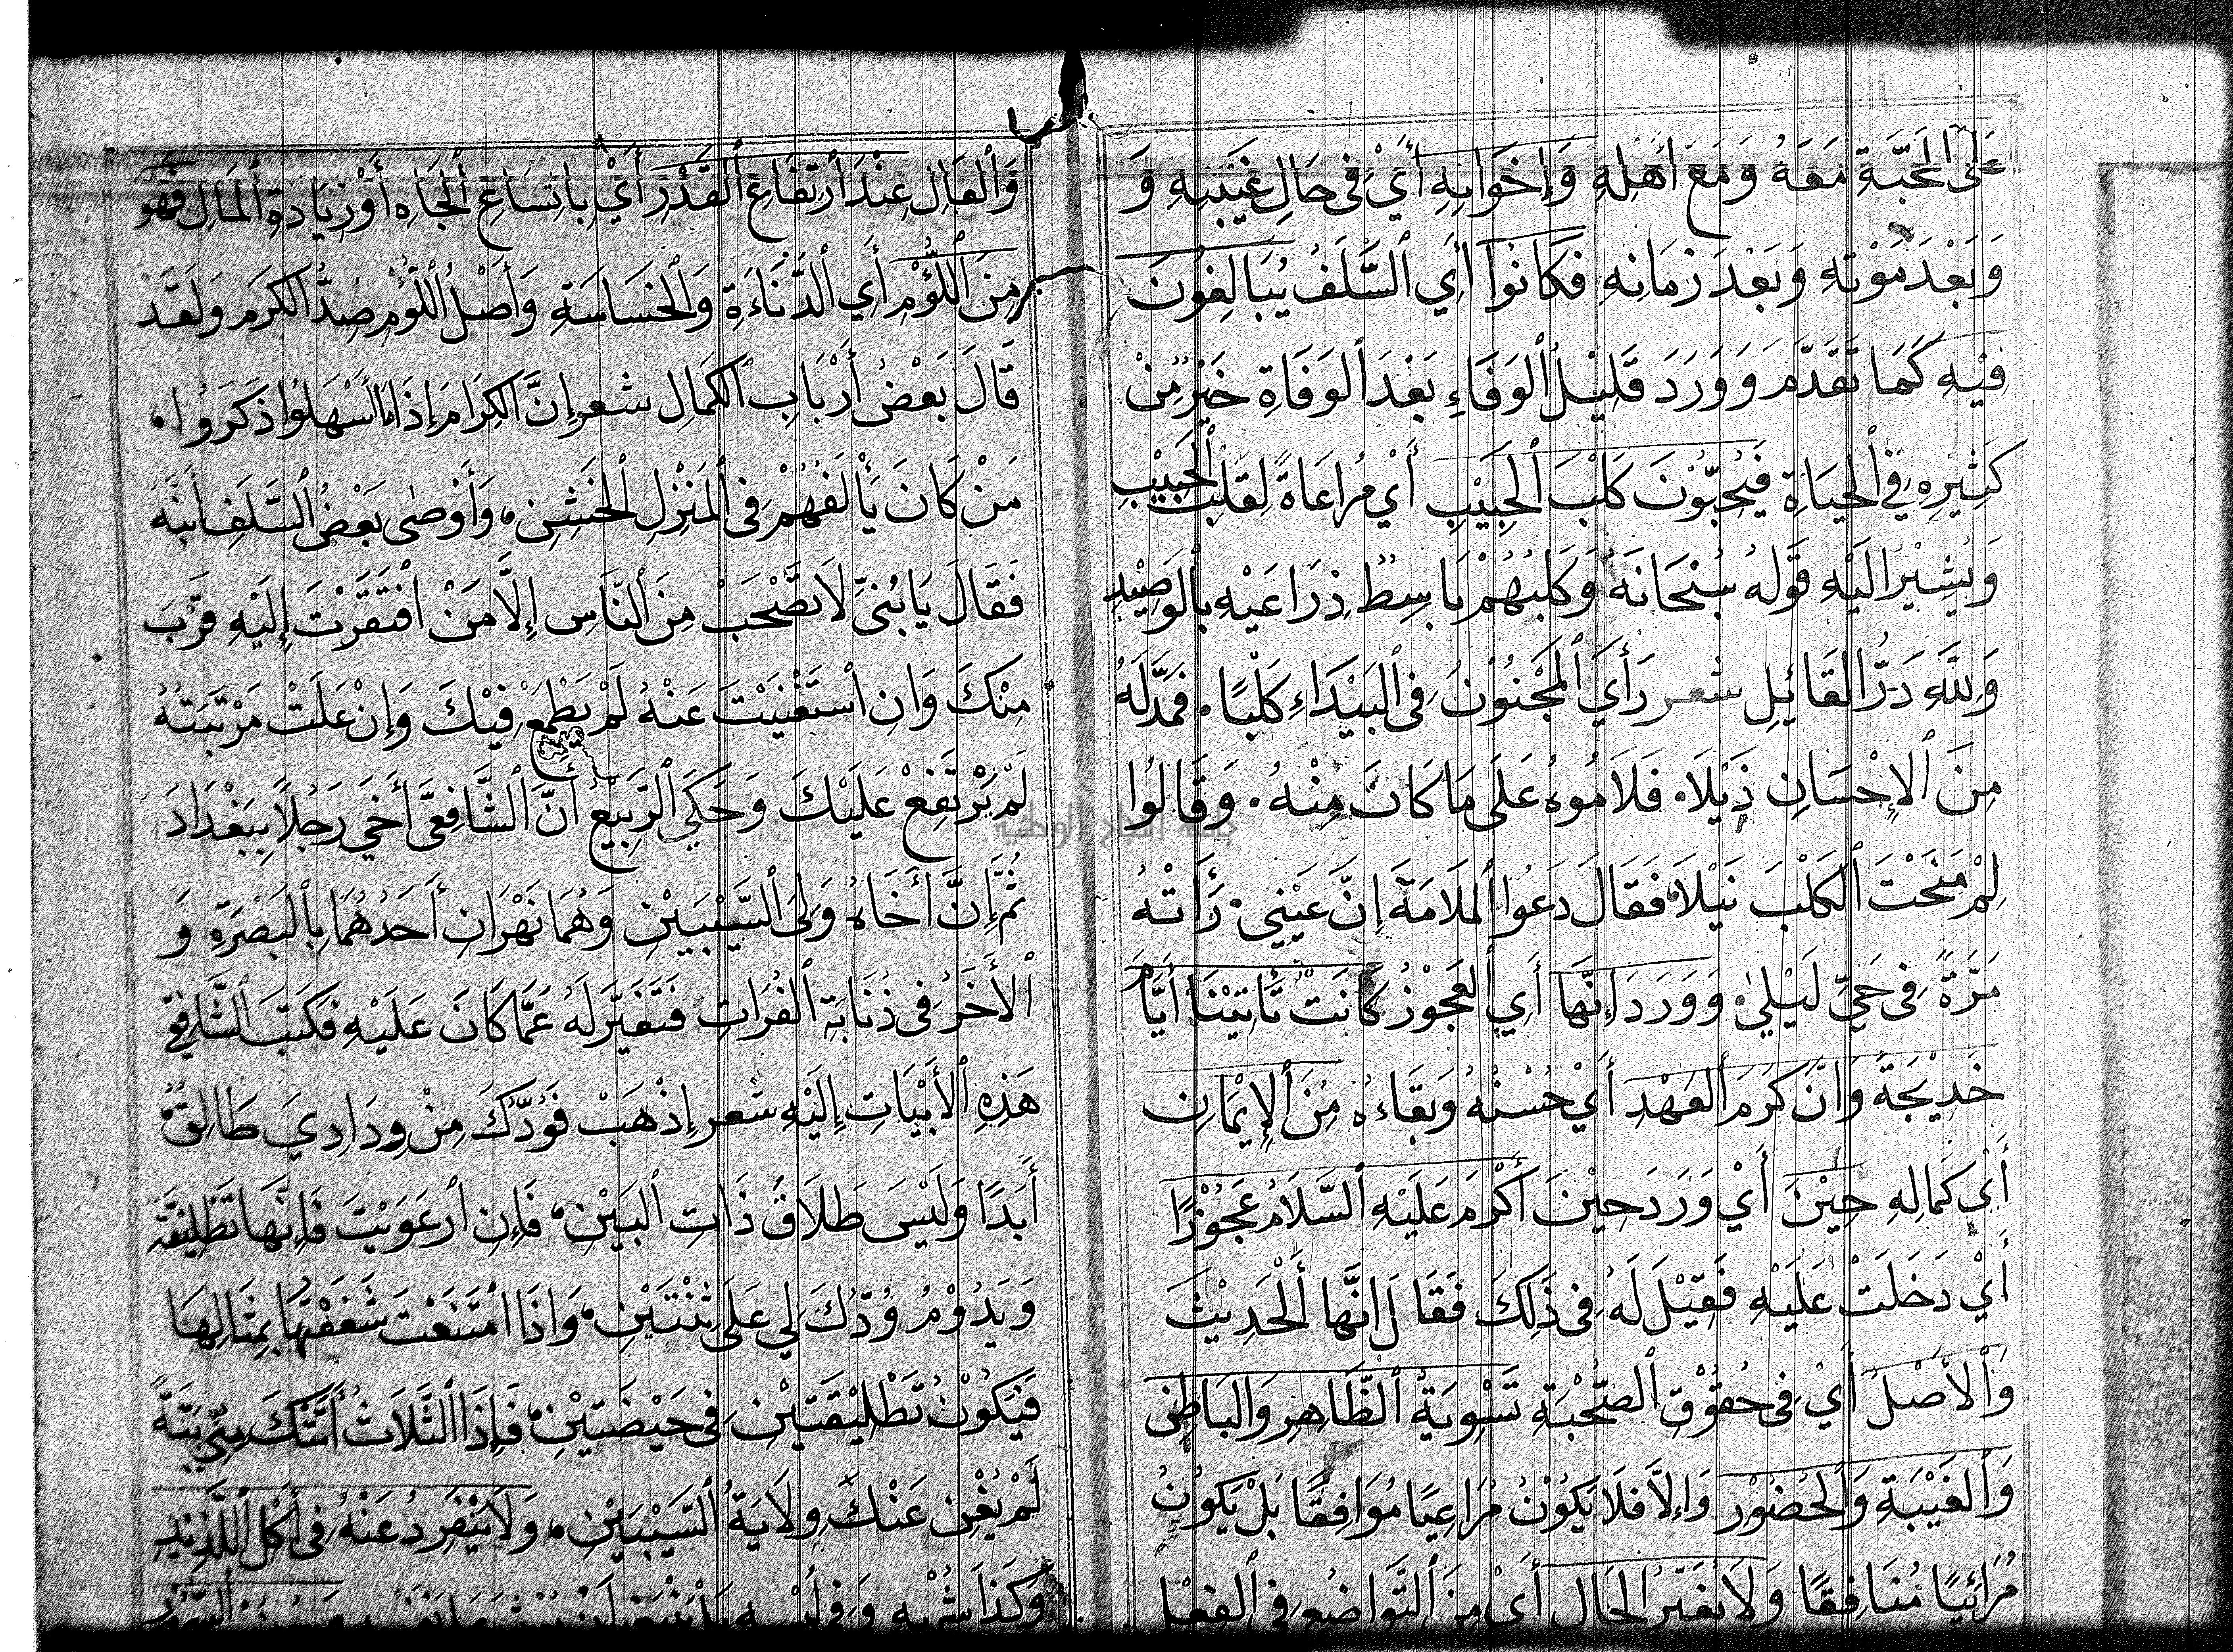 عَلَى الْمَحَبَّةِ مَعَهُ وَمَعَ أَهْلِهِ وَإِخْوَانِهِ أَيْ فِي حَالِ غَيْبَتِهِ وَ
وَبَعْدَ مَوْتِهِ وَبَعْدَ زَمَانِهِ فَكَانُوا أَيِ السَّلَفُ يُبَالِغُونَ
فِيْهِ كَمَا تَقَدَّمَ وَوَرَدَ قَلِيْلُ الْوَفَاءِ بَعْدَ الْوَفَاةِ خَيْرٌ مِنْ
كَثِيْرِهِ فِي الْحَيَاةِ فَيُحِبُّوْنَ كَلْبَ الْحَبِيْبِ أَيْ مُرَاعَاةً لِقَلْبِ الْحَبِيْبِ
وَيُشِيْرُ إِلَيْهِ قَوْلُهُ سُبْحَانَهُ وَكَلْبُهُمْ بَاسِطٌ ذِرَاعَيْهِ بِالْوَصِيْدِ
وَلِلَّهِ دَرُّ الْقَائِلِ شعر رَأَى الْمَجْنُوْنُ فِي الْبَيْدَاءِ كَلْبًا ۰ فَمَدَّ لَهُ
مِنَ الْإِحْسَانِ ذَيْلًا ۰ فَلَامُوهُ عَلَى مَا كَانَ مِنْهُ ۰ وَقَالُوا
لِمْ مَنَحْتَ الْكَلْبَ نَيْلًا ۰ فَقَالَ دَعُوا الْمَلَامَةَ إِنَّ عَيْنِي ۰ رَأَتْهُ
مَرَّةً فِي حَيِّ لَيْلَى ۰ وَوَرَدَ إِنَّهَا أَيِ الْعَجُوْزُ كَانَتْ تَأْتِيْنَا أَيَّامَ
خَدِيْجَةَ وَإِنَّ كَرَمَ الْعَهْدِ أَيْ حُسْنُهُ وَبَقَاءُهُ مِنَ الْإِيْمَانِ
أَيْ كَمَالِهِ حِيْنَ أَيْ وَرَدَ حِيْنَ أَكْرَمَ عَلَيْهِ السَّلَامُ عَجُوْزًا
أَيْ دَخَلَتْ عَلَيْهِ فَقِيْلَ لَهُ فِي ذَلِكَ فَقَالَ إِنَّهَا أَلْحَدِيْثَ
وَالْأَصْلُ أَيْ فِي حُقُوْقِ الصُّحْبَةِ تَسْوِيَةُ الظَّاهِرِ وَالْبَاطِنِ
وَالْغَيْبَةِ وَالْحُضُوْرِ وَإِلَّا فَلَا يَكُوْنُ مُرَاعِيًا مُوَافِقًا بَلْ يَكُوْنُ
مُرَائِيًا مُنَافِقًا وَلَا يُغَيِّرُ الْحَالَ أَيْ مِنَ التَّوَاضُعِ فِي الْفِعْلِ
وَالْقَالِ عِنْدَ ارْتِفَاعِ الْقَدْرِ أَيْ بِاتِّسَاعِ الْجَاهِ أَوْ زِيَادَةِ الْمَالِ فَهُوَ
مِنَ اللُّؤْمِ أَيِ الدَّنَاءَةِ وَالْخَسَاسَةِ وَأَصْلُ اللُّؤْمِ ضِدُّ الْكَرَمِ وَلَقَدْ
قَالَ بَعْضُ أَرْبَابِ الْكَمَالِ شعر إِنَّ الْكِرَامَ إِذَا مَا أَسْهَلُوا ذَكَرُوا ۰
مَنْ كَانَ يَأْلَفُهُمْ فِي الْمَنْزِلِ الْخَشِنِ ۰ وَأَوْصَى بَعْضُ السَّلَفِ ابْنَهُ
فَقَالَ يَا بُنَيَّ لَا تَصْحَبْ مِنَ النَّاسِ إِلَّا مَنْ افْتَقَرْتَ إِلَيْهِ قَرُبَ
مِنْكَ وَإِنِ اسْتَغْنَيْتَ عَنْهُ لَمْ يَطْمَعْ فِيْكَ وَإِنْ عَلَتْ مَرْتَبَتُهُ
لَمْ يَرْتَفِعْ عَلَيْكَ وَحَكَى الرَّبِيْعُ أَنَّ الشَّافِعِيَّ أَخَى رَجُلًا بِبَغْدَادَ
ثُمَّ إِنَّ أَخَاهُ وَلِيَ السَّيْبَيْنِ وَهُمَا نَهْرَانِ أَحَدُهُمَا بِالْبَصْرَةِ وَ
الْأَخَرُ فِي ذُنَابَةِ الْفُرَاتِ فَتَغَيَّرَ لَهُ عَمَّا كَانَ عَلَيْهِ فَكَتَبَ الشَّافِعِيُّ
هَذِهِ الْأَبْيَاتِ إِلَيْهِ شعر إِذْهَبْ فَوُدُّكَ مِنْ وِدَادِيَ طَالِقٌ ۰
أَبَدًا وَلَيْسَ طَلَاقَ ذَاتِ الْبَيْنِ ۰ فَإِنِ ارْعَوَيْتَ فَإِنَّهَا تَطْلِيْقَةٌ
وَيَدُوْمُ وُدُّكَ لِي عَلَى ثِنْتَيْنِ ۰ وَإِذَا امْتَنَعْتَ شَفَعْتُهَا بِمِثَالِهَا
فَيَكُوْنُ تَطْلِيْقَتَيْنِ فِي حَيْضَتَيْنِ ۰ فَإِذَا الثَّلَاثُ أَتَتْكَ مِنِّي بَتَّةً
لَمْ يُغْنِ عَنْكَ وِلَايَةُ السَّيْبَيْنِ ۰ وَلَا يَنْفَرِدُ عَنْهُ فِي أَكْلِ اللَّذِيْذِ
وَكَذَا شُرْبِهِ وَفِي لُبْسِهِ
جامعة النجاح الوطنية